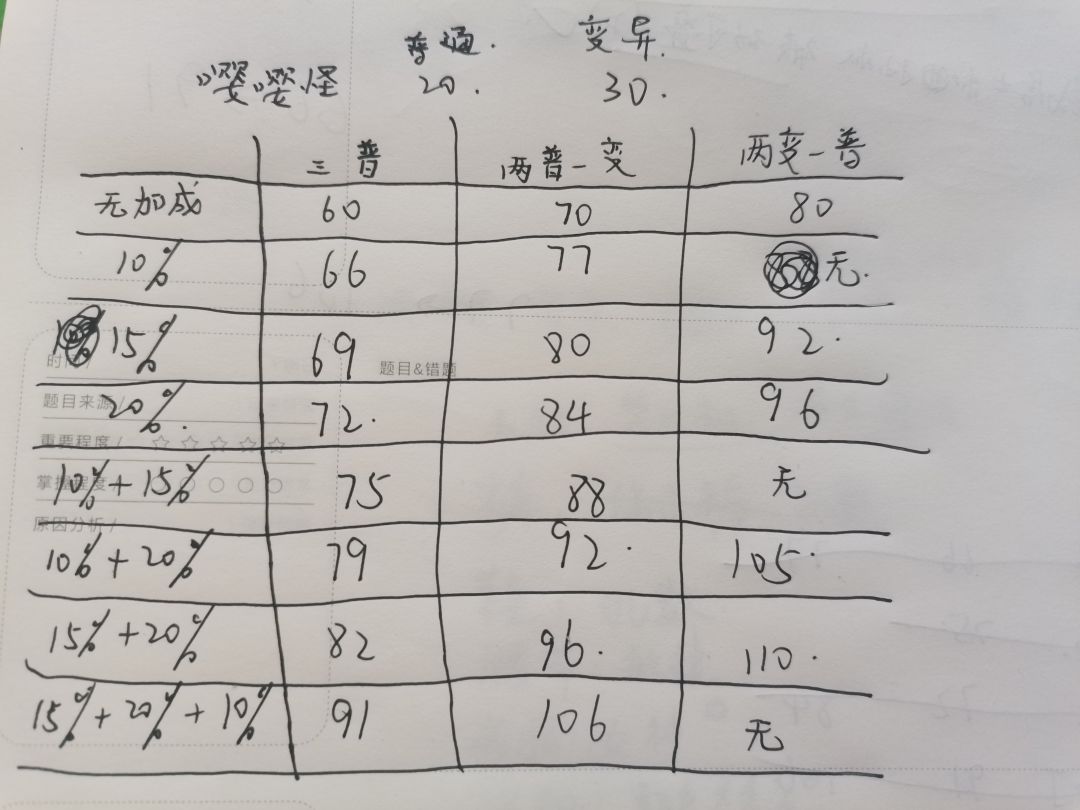 普通. 变异.
嘤嘤怪 20. 30.
三普 两普一变 两变一普
无加成 60 70 80
10% 66 77 无.
15% 69 80 92.
时间/ 题目&错题
20%. 72. 84 96
题目来源/
重要程度/ ☆☆☆☆☆
10%+15% 75 88 无
掌握程度 ○○○○
原因分析/
10%+20% 79 92. 105.
15%+20% 82 96. 110.
15%+20%+10% 91 106 无